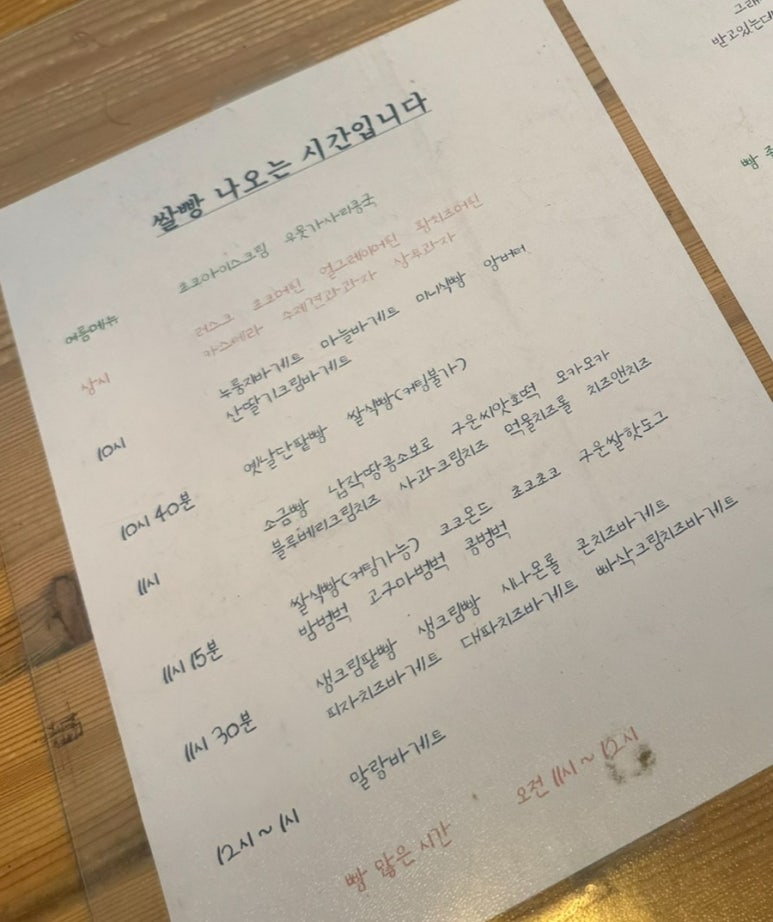 쌀빵 나오는 시간입니다
여름메뉴 초코아이스크림 우뭇가사리콩국
상시 러스크 쵸코머틴 얼그레이머틴 팥치즈머틴
카스테라 수제견과과자 상투과자
10시 누룽지바게트 마늘바게트 미니식빵 앙버터
산딸기크림바게트
10시 40분 옛날단팥빵 쌀식빵(커팅불가)
11시 소금빵 납작땅콩소보로 구운씨앗호떡 모카모카
블루베리크림치즈 사과크림치즈 먹물치즈롤 치즈앤치즈
11시 15분 쌀식빵(커팅가능) 코코온드 초코초코 구운쌀핫도그
밤범벅 고구마범벅 콩범벅
11시 30분 생크림팥빵 생크림빵 시나몬롤 콘치즈바게트
피자치즈바게트 대파치즈바게트 빠삭크림치즈바게트
12시~1시 말랑바게트
빵 많은 시간 오전 11시~12시
받고있는데
빵